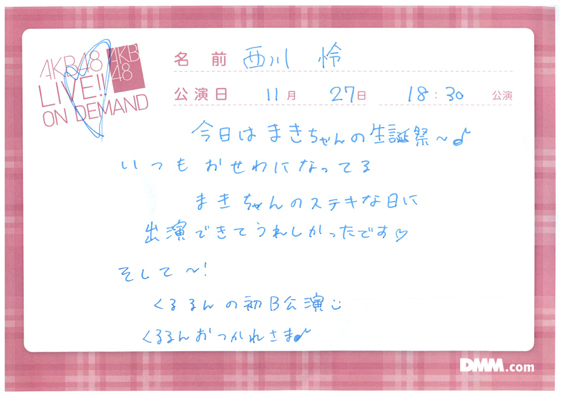 AKB48
LIVE!!
ON DEMAND
AKB
48
名前 西川 怜
公演日 11月 27日 18:30 公演
今日はまきちゃんの生誕祭～♪
いつもおせわになってる
まきちゃんのステキな日に
出演できてうれしかったです♡
そして～!
くるるんの初B公演
くるるんおつかれさま♪
DMM.com